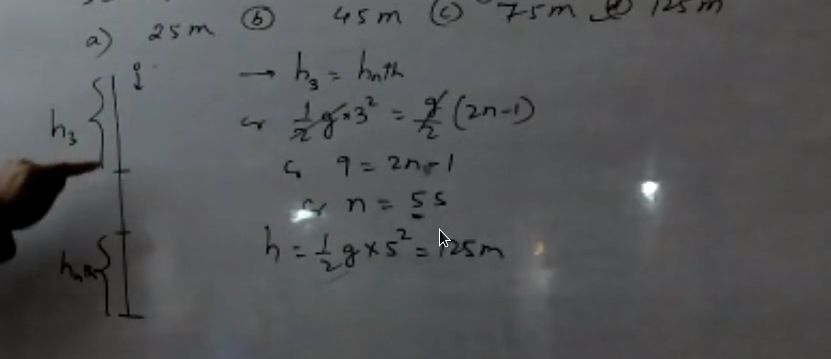 a) 25m (b) 45m (c) 75m (d) 125m
→ h₃ = hₙth
or ½g×3² = g/2 (2n-1)
or 9 = 2n-1
or n = 5s
h = ½g×5² = 125m
h₃
hₙth